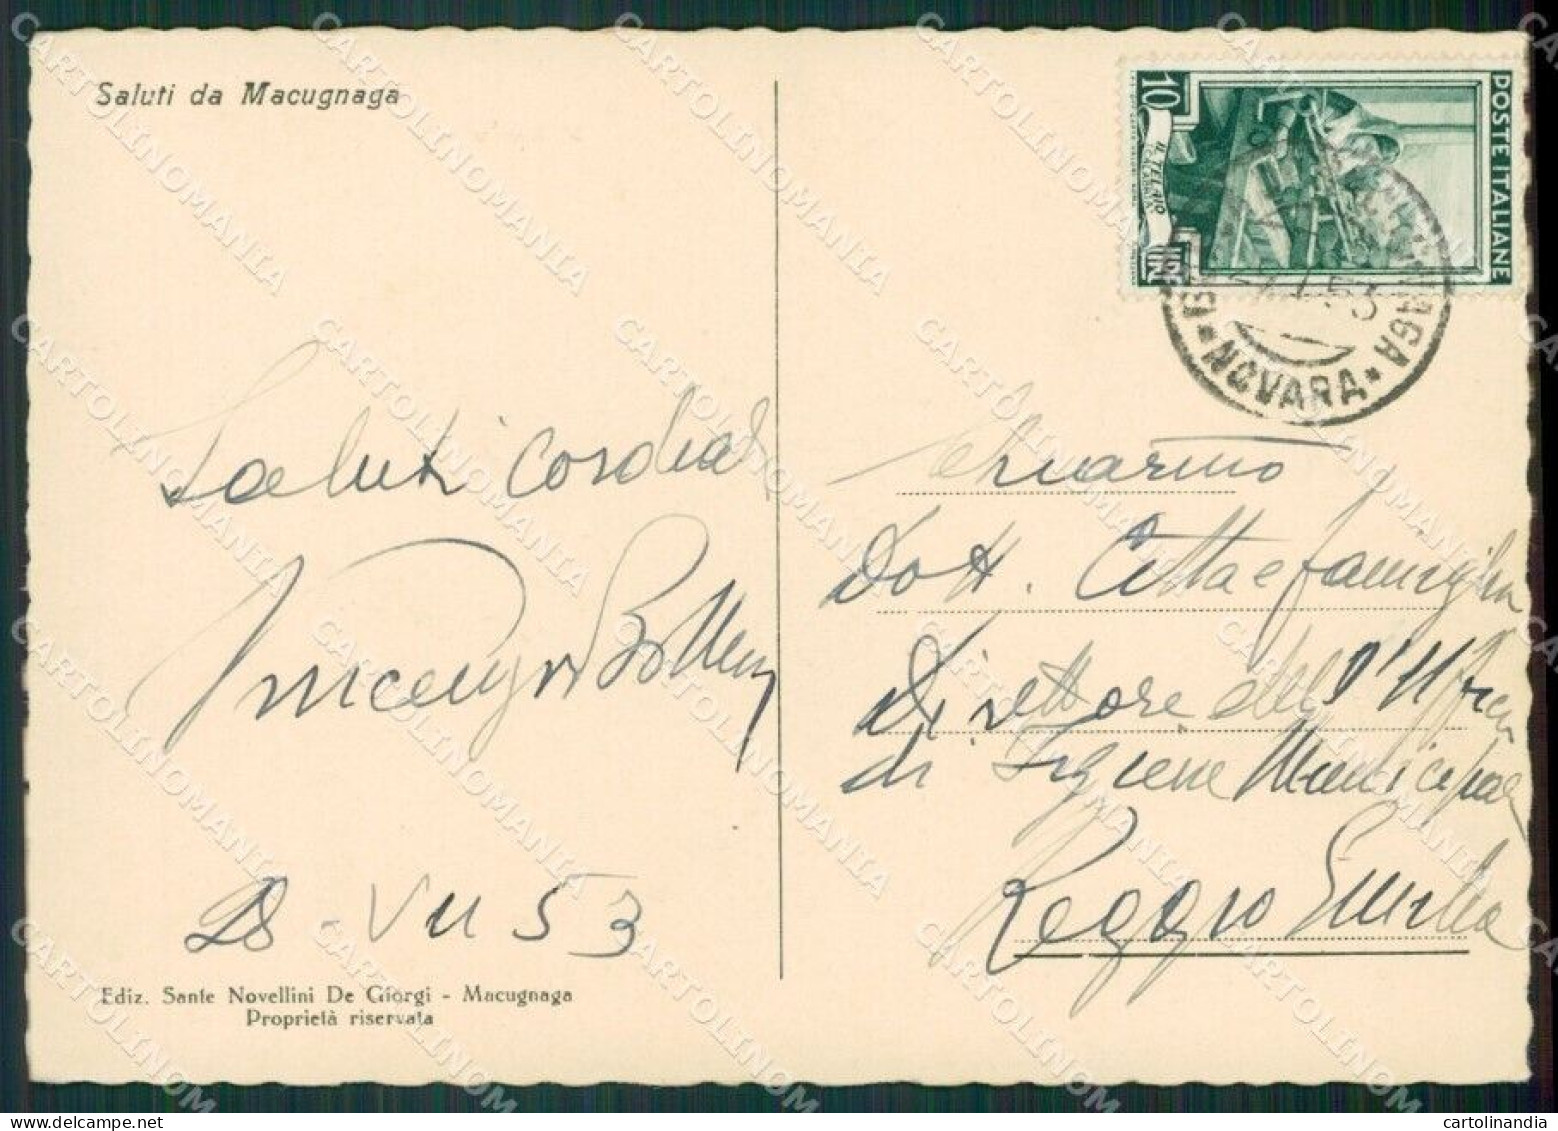 Saluti da Macugnaga
10
POSTE ITALIANE
IL TELAIO
LIRE
MACUGNAGA
NOVARA
53
Saluti cordiali
Vincenzo
28 - VII 53
Ediz. Sante Novellini De Giorgi - Macugnaga
Proprietà riservata
Dott. Citta e famiglia
Direttore dell'Ufficio
di Igiene Municipale
Reggio Emilia
CARTOLINOMANIA
cartolinandia